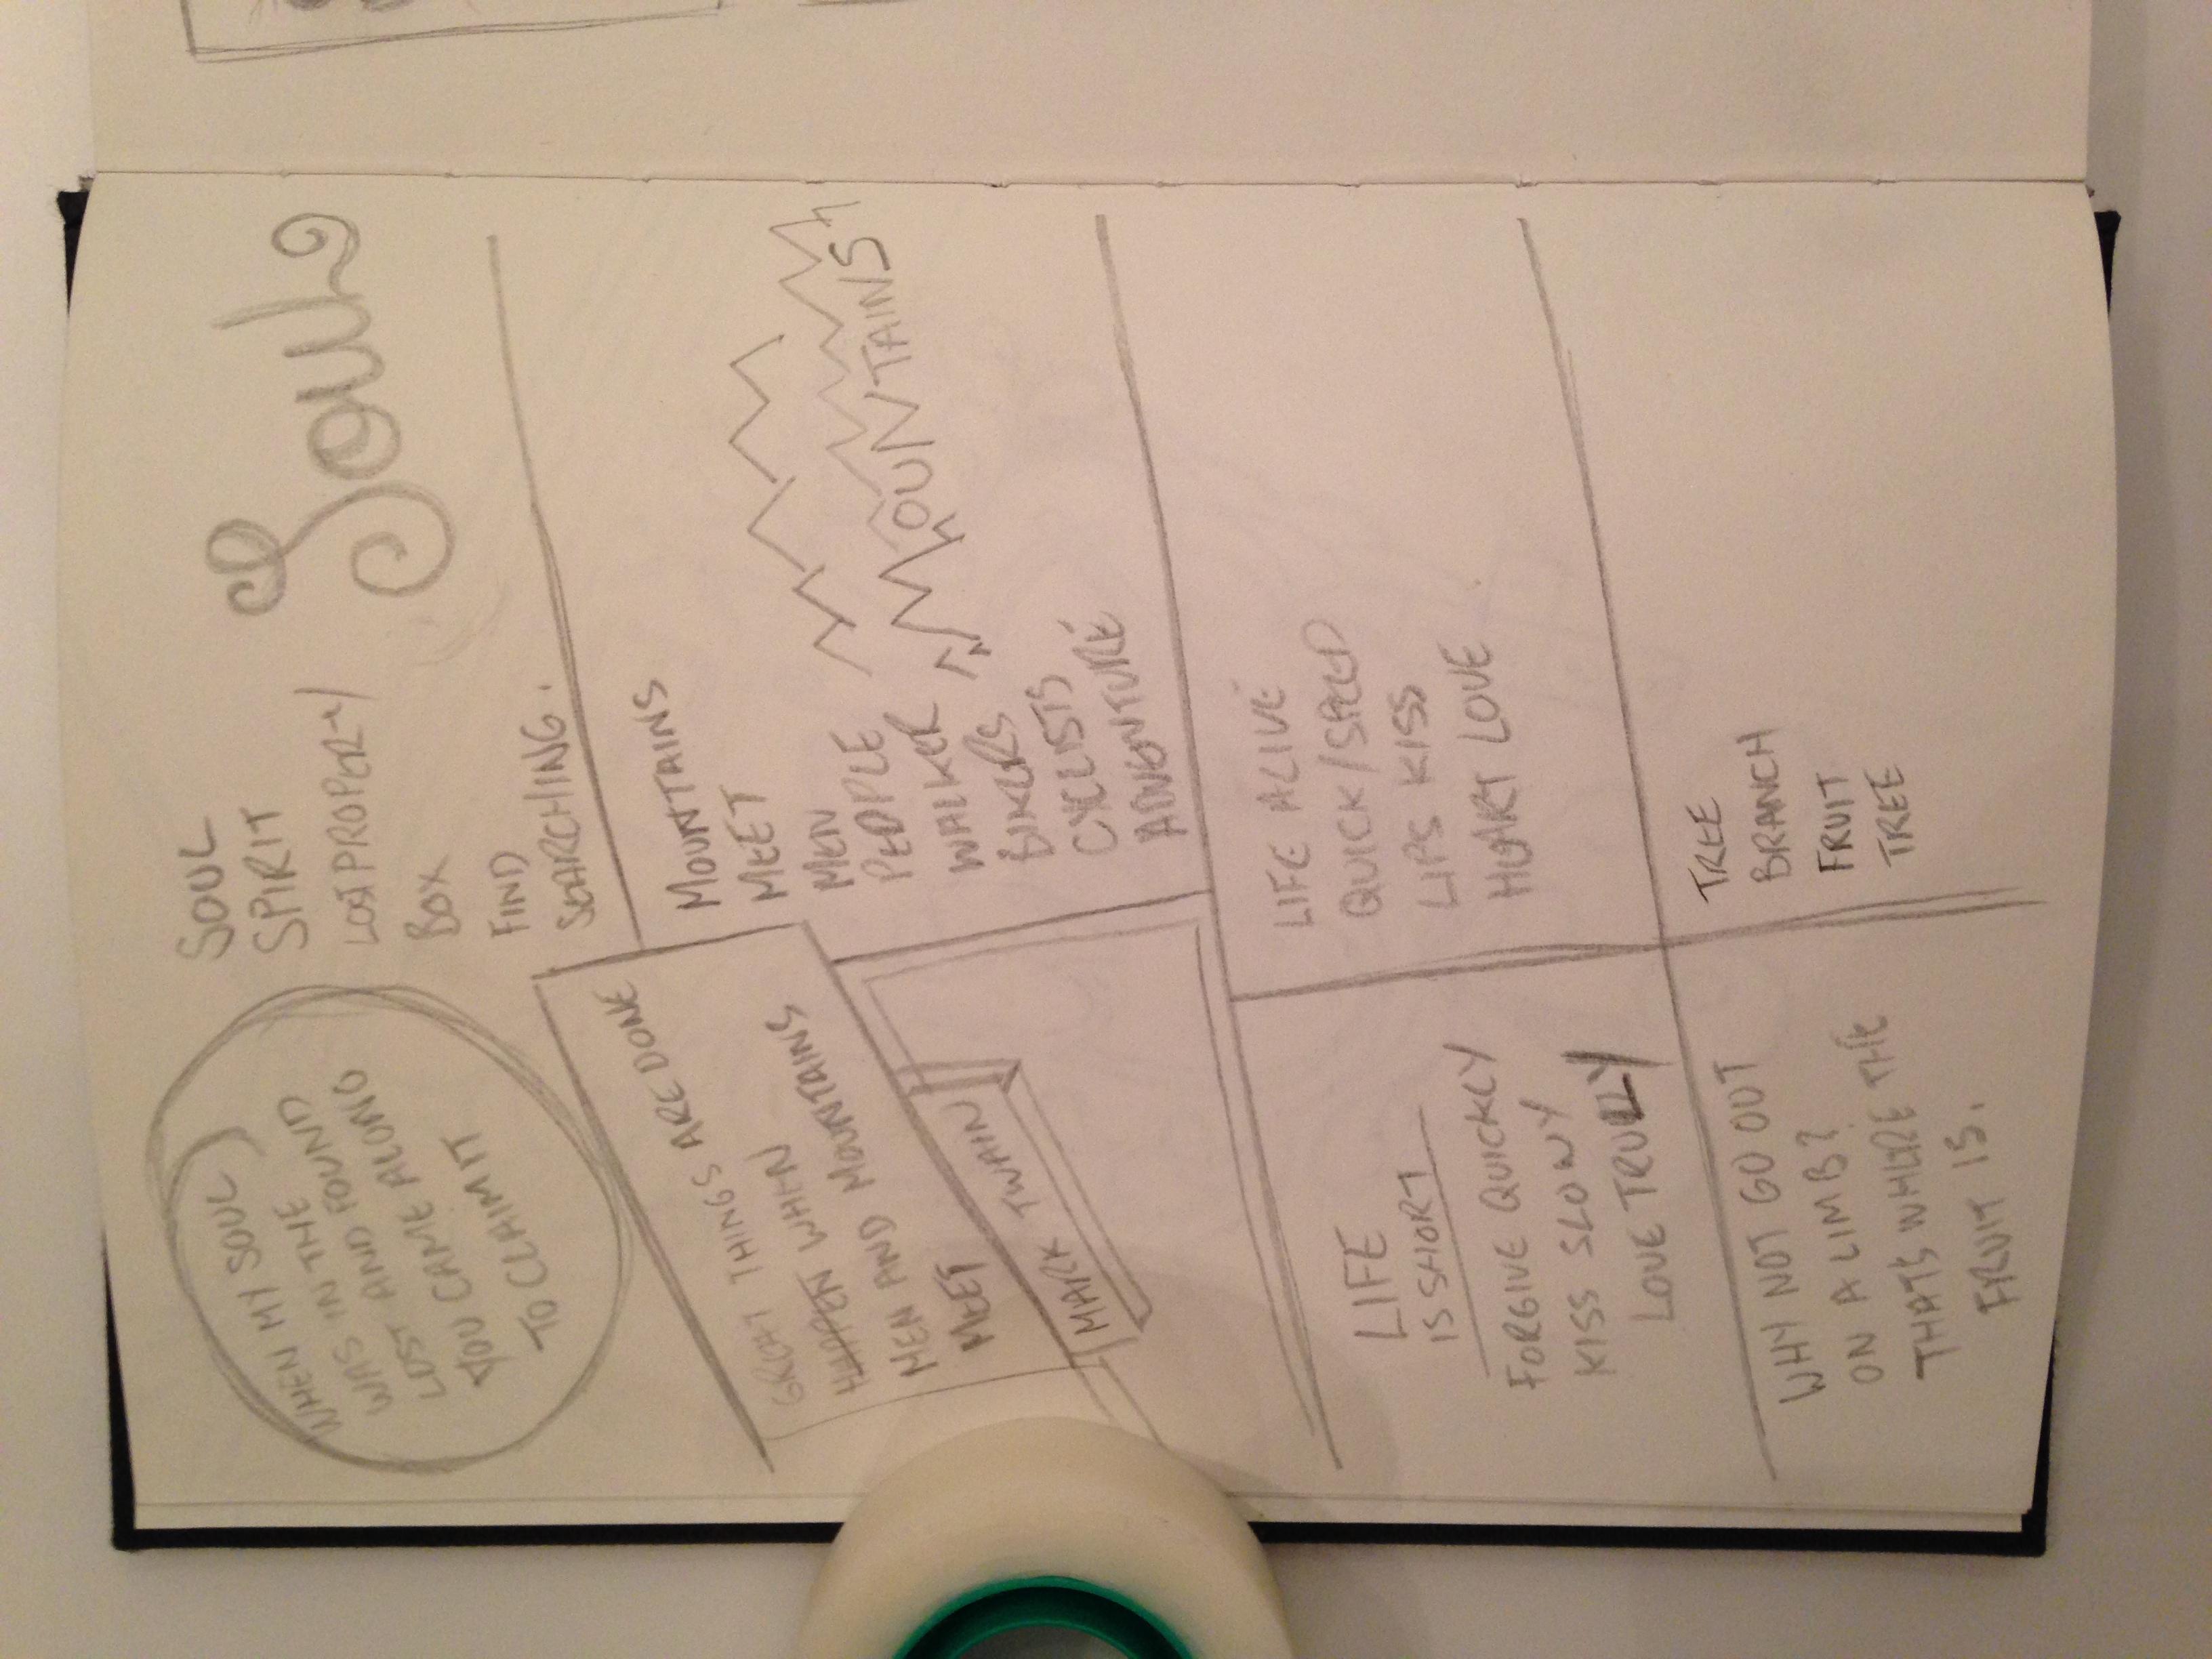 WHEN MY SOUL
WAS IN THE
LOST AND FOUND
YOU CAME ALONG
TO CLAIM IT
SOUL
SPIRIT
LOST PROPERTY
BOX
FIND
SEARCHING.
Soul
GREAT THINGS ARE DONE
HAPPEN WHEN
MEN AND MOUNTAINS
MEET
MARK TWAIN
MOUNTAINS
MEET
MEN
PEOPLE
WALKER
BIKERS
CYCLISTS
ADVENTURE
MOUNTAINS
LIFE
IS SHORT
FORGIVE QUICKLY
KISS SLOWY
LOVE TRULLY
LIFE ALIVE
QUICK/SPEED
LIPS KISS
HEART LOVE
WHY NOT GO OUT
ON A LIMB?
THAT'S WHERE THE
FRUIT IS.
TREE
BRANCH
FRUIT
TREE